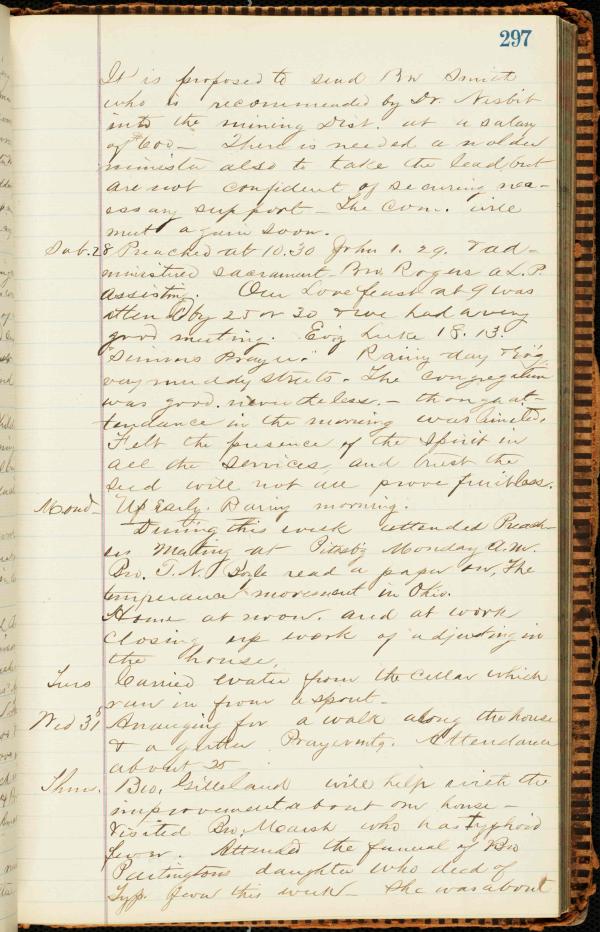 297
It is proposed to send Bro Smith
who is recommended by Dr. Nesbit
into the mining Dist. at a salary
of 600 — There is needed an older
minister also to take the lead but
are not confident of securing nec-
essary support — The Com. will
meet again soon.
Sab. 28 Preached at 10.30 John 1. 29. & ad-
ministered sacrament Bro. Rogers a L. P.
assisting. Our Lovefeast at 9 was
atten d by 25 or 30 & we had a very
good meeting. Ev'g Luke 18. 13.
"Sinners Prayer." Rainy day & Ev'g
very muddy streets. The congregation
was good. nevertheless. — though at-
tendance in the morning was limited.
Felt the presence of the Spirit in
all the services, and trust the
seed will not all prove fruitless.
Mond. Up Early. Rainy morning.
During this week attended Preach-
ers Meeting at Pittsb'g Monday A.M.
Bro. T. N. Boyle read a paper on, The
temperance movement in Ohio.
Home at noon. and at work
closing up work of adjusting in
the house.
Tues Carried water from the cellar which
run in from a spout —
Wed 31st Arranging for a walk along the house
& a gutter. Prayermtg. Attendance
about 25
Thur. Bro. Gilleland will help with the
improvement about our house —
Visited Bro. Marsh who has typhoid
fever. Attended the funeral of Bro
Partingtons daughter who died of
Typ. fever this week — She was about